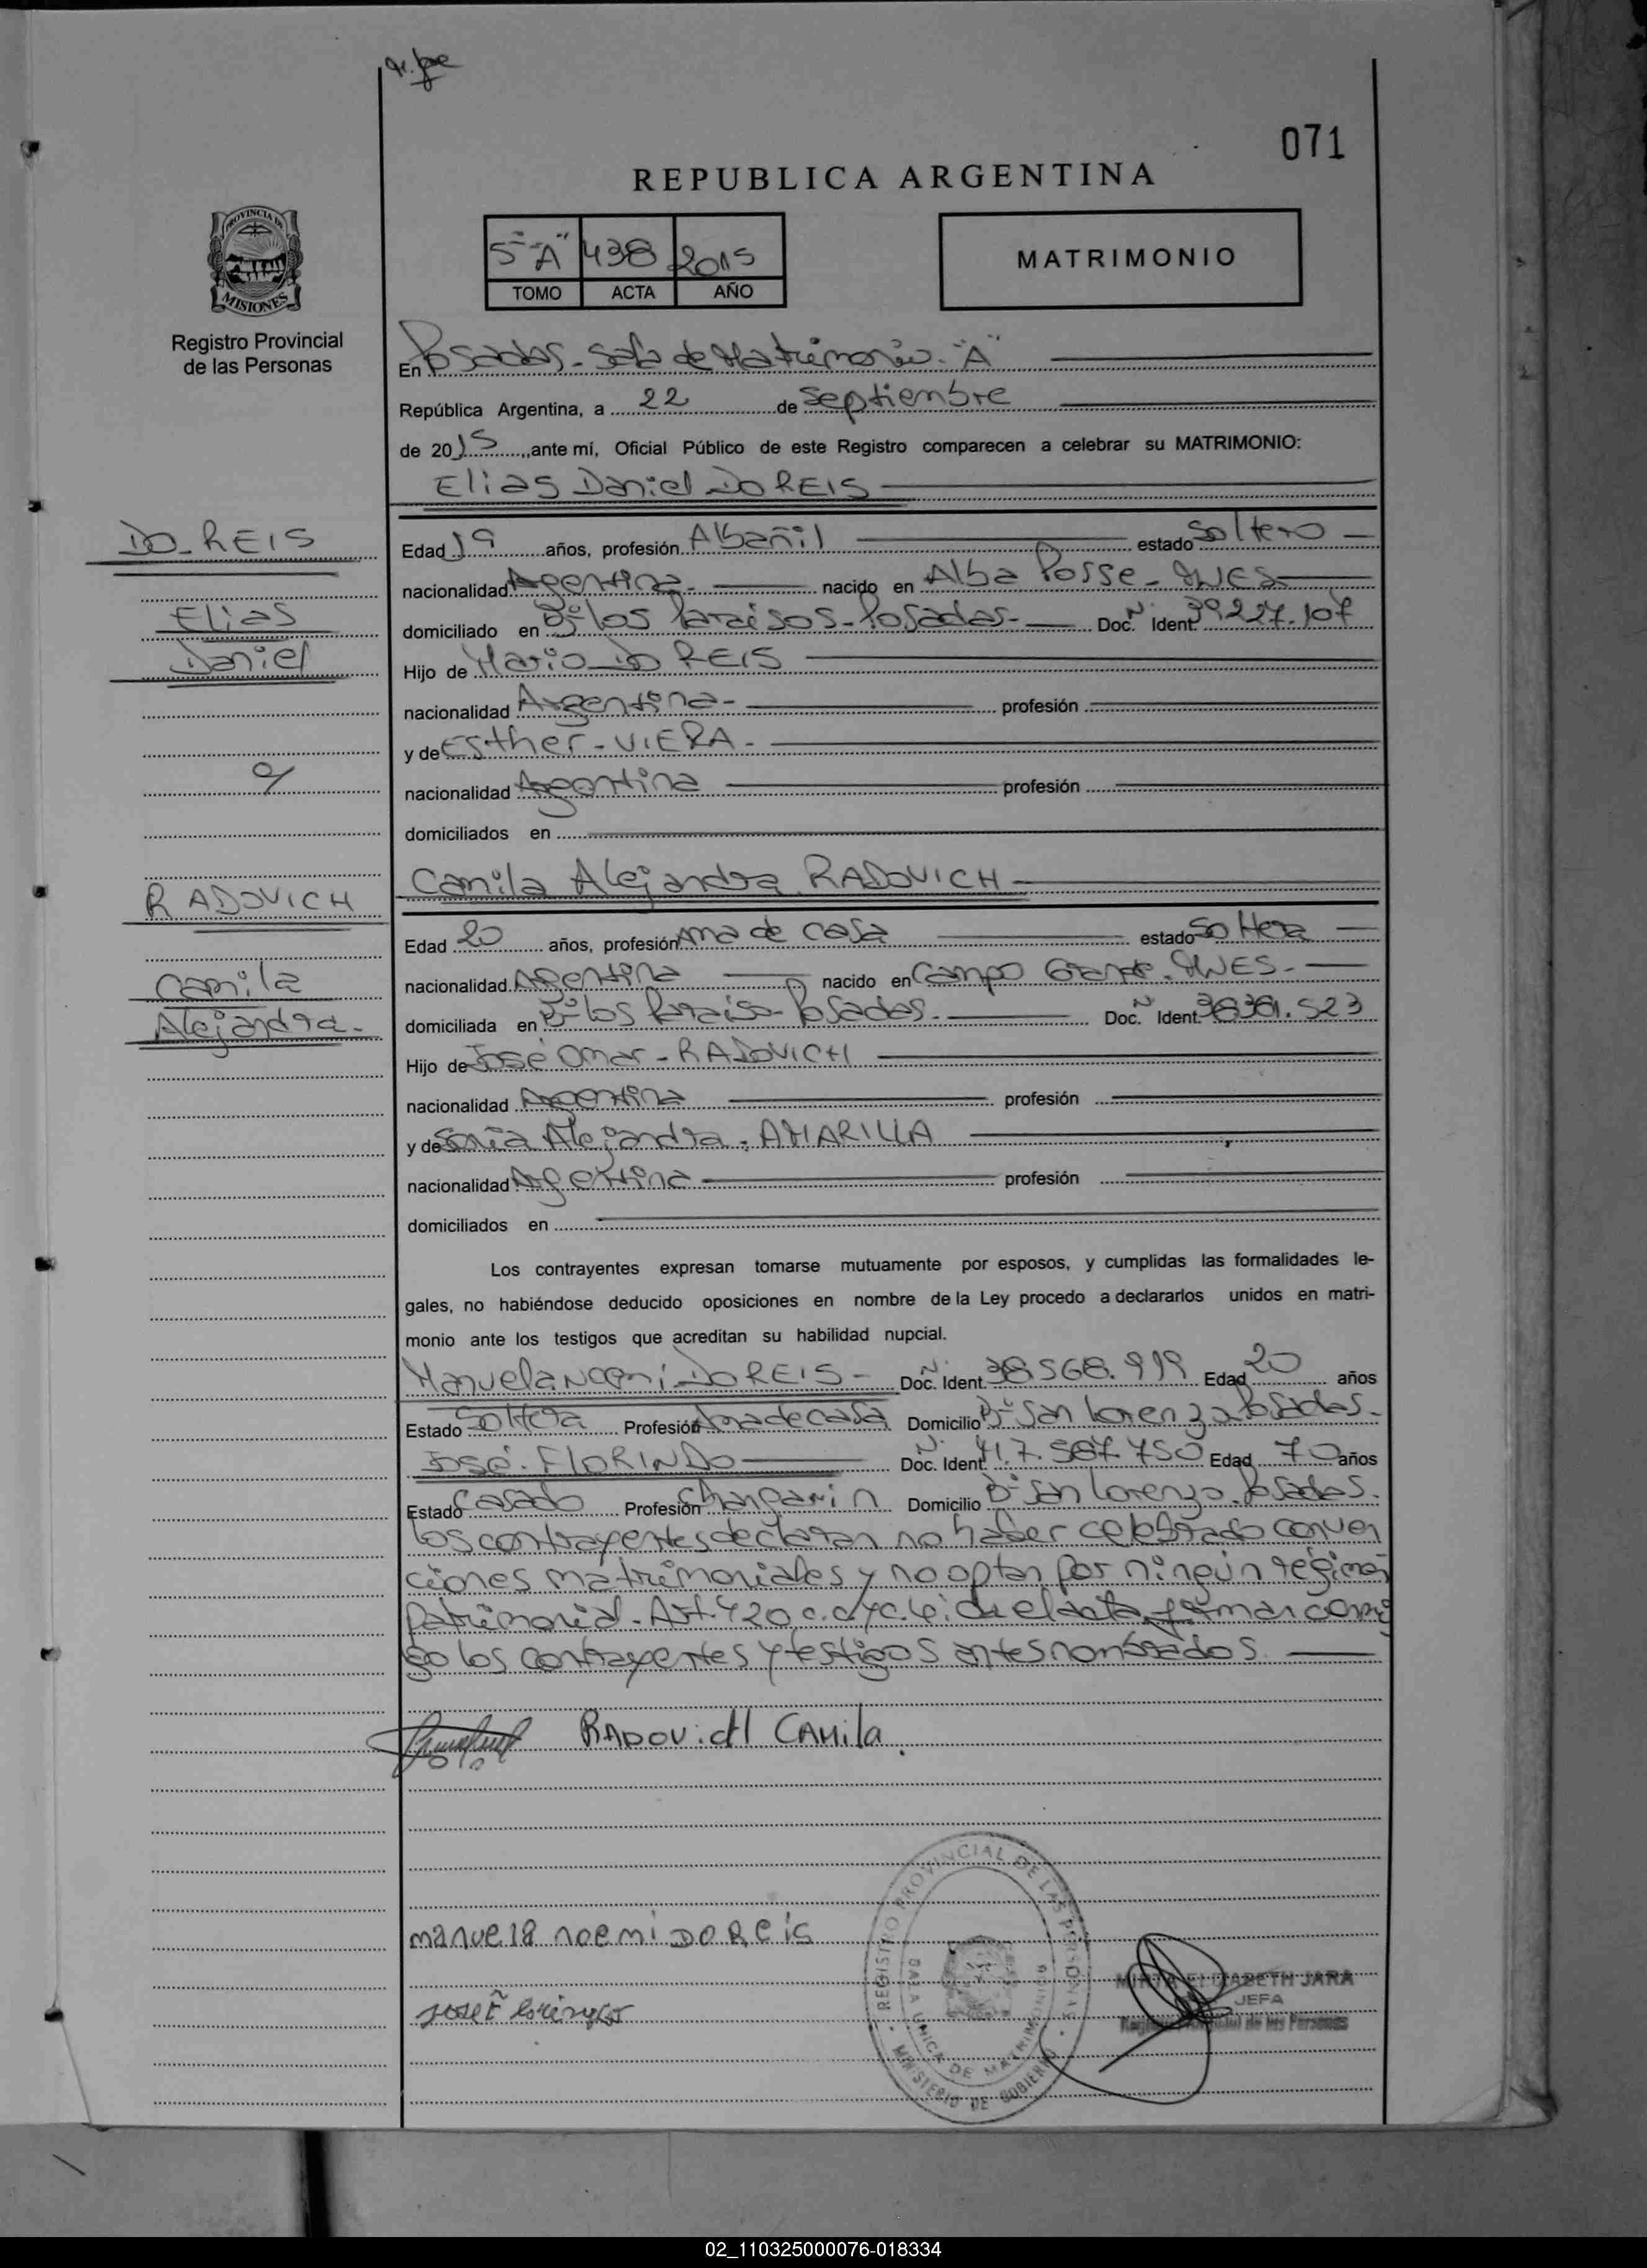 071
REPUBLICA ARGENTINA
5º "A" 438 2015
TOMO ACTA AÑO
MATRIMONIO
PROVINCIA DE
MISIONES
Registro Provincial
de las Personas
En Posadas - Sala de Matrimonio - "A"
República Argentina, a 22 de Septiembre
de 2015, ante mí, Oficial Público de este Registro comparecen a celebrar su MATRIMONIO:
Elias Daniel DO REIS
DO REIS
Elias
Daniel
Edad 19 años, profesión Albañil estado Soltero
nacionalidad Argentina - nacido en Alba Posse - MNES
domiciliado en Bº los Paraisos - Posadas - Doc. Nº Ident. 39.227.107
Hijo de Mario DO REIS
nacionalidad Argentina - profesión
y de Esther - VIERA -
nacionalidad Argentina profesión
domiciliados en
Camila Alejandra RADOVICH
RADOVICH
Camila
Alejandra.
Edad 20 años, profesión Ama de Casa estado Soltera
nacionalidad Argentina nacido en Campo Grande - MNES. -
domiciliada en Bº los Paraiso - Posadas. Doc. Nº Ident.
Hijo de José Omar - RADOVICH
nacionalidad Argentina profesión
y de Sonia Alejandra . AMARILLA
nacionalidad Argentina profesión
domiciliados en
Los contrayentes expresan tomarse mutuamente por esposos, y cumplidas las formalidades le-
gales, no habiéndose deducido oposiciones en nombre de la Ley procedo a declararlos unidos en matri-
monio ante los testigos que acreditan su habilidad nupcial.
Manuela Noemi DO REIS - Doc. Nº Ident. 38.568.999 Edad 20 años
Estado Soltera Profesión Ama de casa Domicilio Bº San Lorenzo Posadas -
José - FLORINDO Doc. Nº Ident. Edad 70 años
Estado Casado Profesión Changarin Domicilio Bº San Lorenzo Posadas.
los contrayentes declaran no haber celebrado conven
ciones matrimoniales y no optan por ningún régimen
Patrimonial - Art. 420 leida el acta firman conmi
go los contrayentes y testigos antes nombrados.
RADOVicH CAMila.
manuela noemi DO Reis
JOSE
REGISTRO PROVINCIAL DE LAS PERSONAS
SALA UNICA DE MATRIMONIOS
MINISTERIO DE GOBIERNO
ELIZABETH JARA
JEFA
Registro Provincial de las Personas
02_110325000076-018334